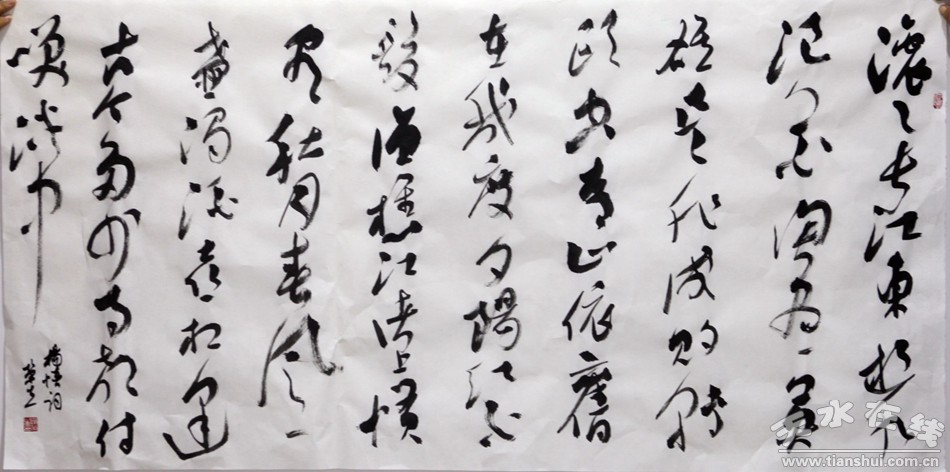 滚〻长江東逝水
浪花淘尽英
雄是非成败轉
頭空青山依舊
在我度夕陽紅白
髮漁樵江渚上惯
看秋月春风一
壶濁酒喜相逢
古今多少事都付
笑谈中
楊慎词
天水在线
www.tianshui.com.cn